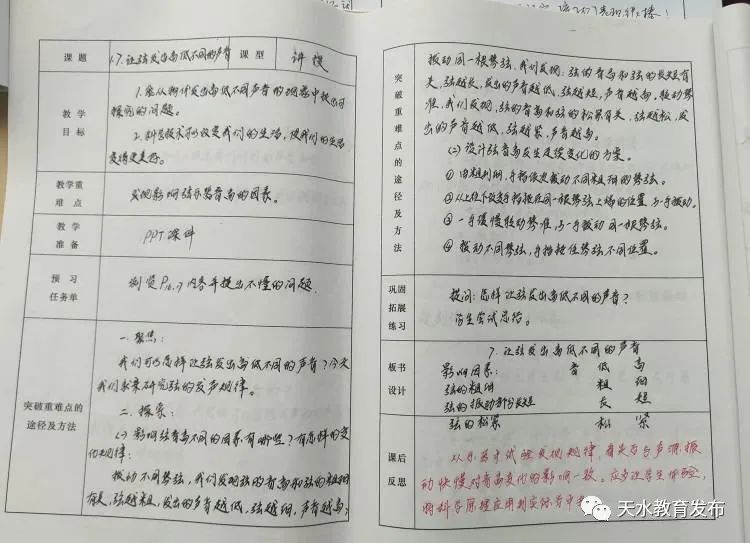 课 题
1.7.让弦发出高低不同的声音
课 型
讲授
教 学
目 标
1.能从物体发出高低不同声音的观察中提出可
探究的问题。
2.科学技术可以改变我们的生活,使我们的生活
变得更美好。
教学重
难 点
发现影响弦乐器音高的因素。
教 学
准 备
PPT课件
预 习
任务单
浏览P16.17内容并提出不懂的问题.
突破重难点的
途径及方法
一.聚焦:
我们可以怎样让弦发出高低不同的声音?今天
我们就来研究弦的发声规律。
二.探索:
(一)影响弦音高不同的因素有哪些?有怎样的变
化规律:
拨动不同琴弦,我们发现弦的音高和弦的粗细
有关,弦越粗,发出的声音越低,弦越细,声音越高;
突
破
重
难
点
的
途
径
及
方
法
拨动同一根琴弦,我们发现:弦的音高和弦的长短有
关,弦越长,发出的声音越低,弦越短,声音越高。
准,我们发现,弦的音高和弦的松紧有关,弦越松,发
出的声音越低,弦越紧,声音越高。
(二)设计弦音高发生连续变化的方案。
①由粗到细,手指依次拨动不同粗细的琴弦。
②从上往下改变手指按住同一根琴弦上端的位置,另一手拨动。
③一手缓慢 琴准,另一手拨动同一根琴弦。
④拨动不同琴弦,手指按住琴弦不同位置。
巩固
拓展
练习
提问:怎样让弦发出高低不同的声音?
学生尝试总结。
板书
设计
7.让弦发出高低不同的声音
影响因素: 音 低 高
弦的粗细 粗 细
弦的振动部分长短 长 短
弦的松紧 松 紧
课后
反思
从乐器中试验发现规律,看是否与声源振
动快慢对音高变化的影响一致。应多让学生体验,
将科学原理应用到实际当中
天水教育发布